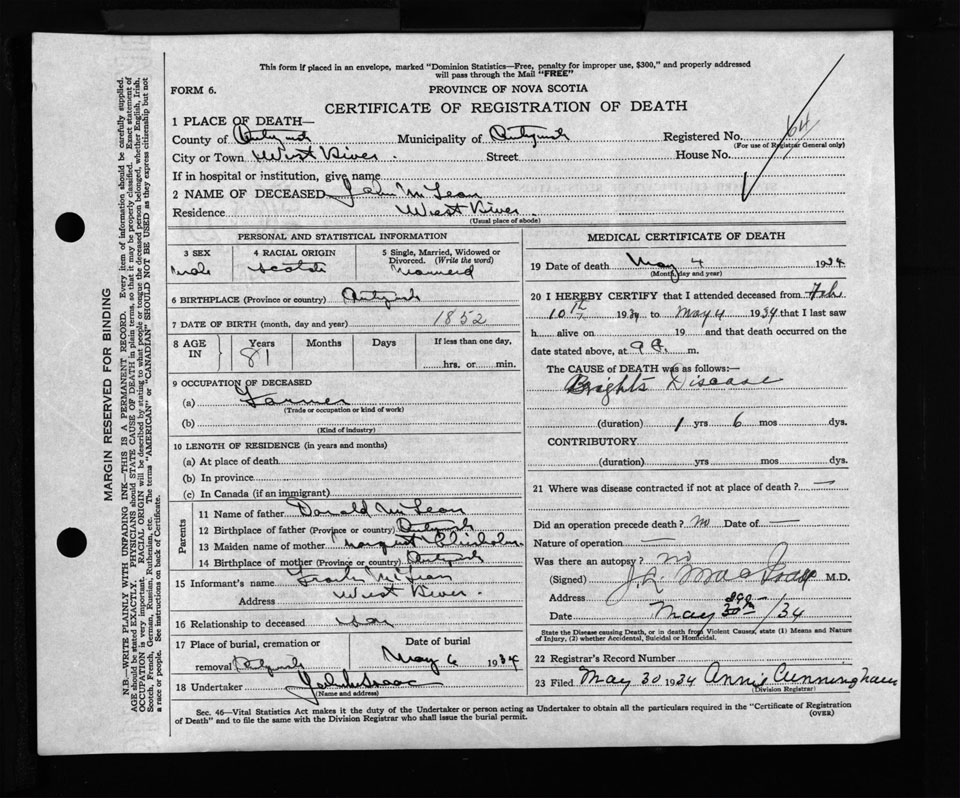 This form if placed in an envelope, marked "Dominion Statistics—Free, penalty for improper use, $300," and properly addressed
will pass through the Mail "FREE"
FORM 6. PROVINCE OF NOVA SCOTIA
CERTIFICATE OF REGISTRATION OF DEATH
1 PLACE OF DEATH—
County of Antigonish Municipality of Antigonish Registered No. 64
(For use of Registrar General only)
City or Town West River. Street House No.
If in hospital or institution, give name
2 NAME OF DECEASED John McLean
Residence West River
(Usual place of abode)
PERSONAL AND STATISTICAL INFORMATION
3 SEX 4 RACIAL ORIGIN 5 Single, Married, Widowed or
Divorced. (Write the word)
Male Scotch Married
6 BIRTHPLACE (Province or country) Antigonish
7 DATE OF BIRTH (month, day and year) 1852
8 AGE IN Years Months Days If less than one day,
81 hrs. or min.
9 OCCUPATION OF DECEASED
(a) Farmer
(Trade or occupation or kind of work)
(b)
(Kind of industry)
10 LENGTH OF RESIDENCE (in years and months)
(a) At place of death
(b) In province
(c) In Canada (if an immigrant)
Parents
11 Name of father Donald McLean
12 Birthplace of father (Province or country) Antigonish
13 Maiden name of mother Margaret Chisholm
14 Birthplace of mother (Province or country) Antigonish
15 Informant's name McLean
Address West River.
16 Relationship to deceased son
17 Place of burial, cremation or Date of burial
removal Antigonish May 6 1934
18 Undertaker John Isaac
(Name and address)
MEDICAL CERTIFICATE OF DEATH
19 Date of death May 4 1934
(Month, day and year)
20 I HEREBY CERTIFY that I attended deceased from Feb
10th 1934 to May 4 1934 that I last saw
h alive on 19 and that death occurred on the
date stated above, at 9 P. m.
The CAUSE of DEATH was as follows:—
Brights Disease
(duration) 1 yrs 6 mos dys.
CONTRIBUTORY
(duration) yrs mos dys.
21 Where was disease contracted if not at place of death? —
Did an operation precede death? no Date of —
Nature of operation —
Was there an autopsy? no
(Signed) J.L. MacIsaac M.D.
Address
Date May 30th /34
State the Disease causing Death, or in death from Violent Causes, state (1) Means and Nature
of Injury, (2) whether Accidental, Suicidal or Homicidal.
22 Registrar's Record Number
23 Filed May 30 1934 Annie Cunningham
(Division Registrar)
Sec. 46—Vital Statistics Act makes it the duty of the Undertaker or person acting as Undertaker to obtain all the particulars required in the "Certificate of Registration
of Death" and to file the same with the Division Registrar who shall issue the burial permit. (OVER)
MARGIN RESERVED FOR BINDING
N.B.—WRITE PLAINLY WITH UNFADING INK—THIS IS A PERMANENT RECORD. Every item of information should be carefully supplied.
AGE should be stated EXACTLY. PHYSICIANS should STATE CAUSE OF DEATH in plain terms, so that it may be properly classified. Exact statement of
OCCUPATION is very important. RACIAL ORIGIN will be described by stating to what people or tongue the deceased person belonged, whether English, Irish,
Scotch, French, German, Russian, Ruthenian, etc. The terms "AMERICAN" or "CANADIAN" SHOULD NOT BE USED as they express citizenship but not
a race or people. See instructions on back of Certificate.